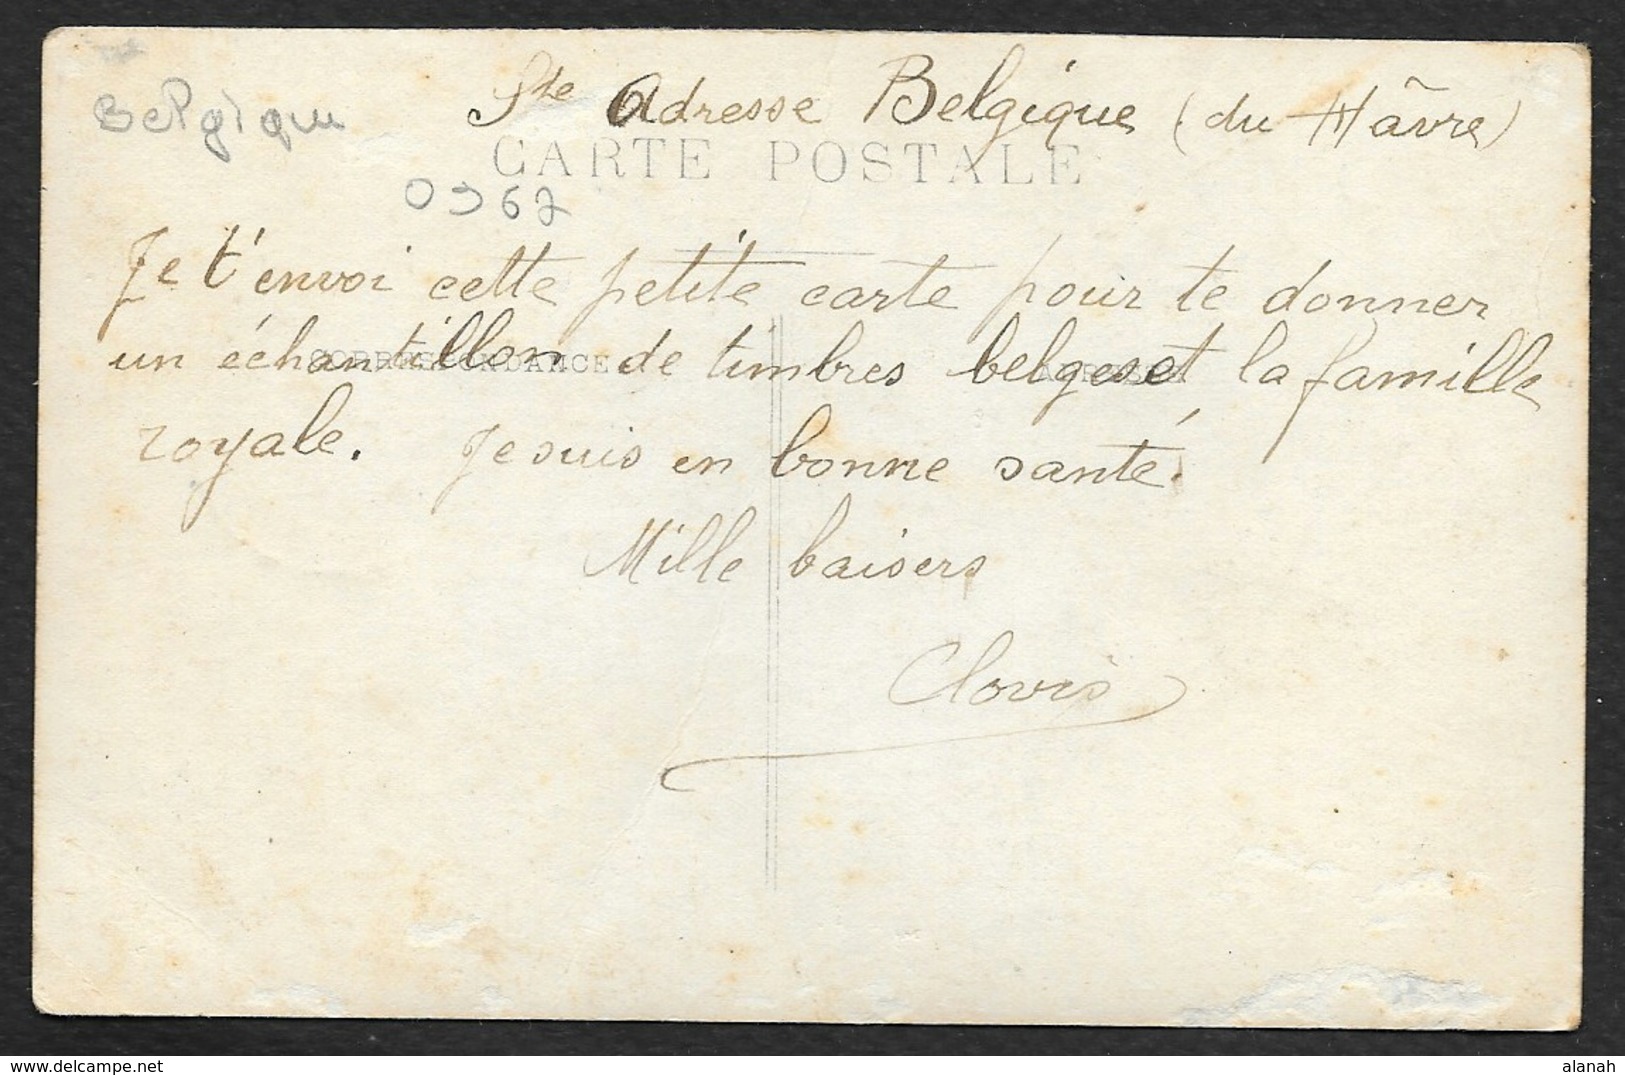 Belgique
Ste Adresse Belgique (du Hâvre)
CARTE POSTALE
0967
Je t'envoi cette petite carte pour te donner
un échantillon de timbres belges et la famille
CORRESPONDANCE ADRESSE
royale. Je suis en bonne santé.
Mille baisers
Clovis
alanah